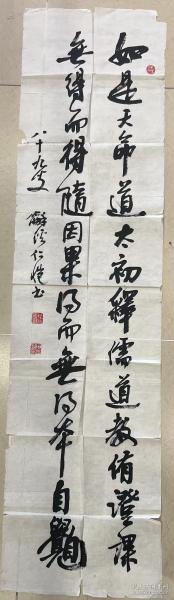 如是天命道太初釋儒道教倩證課
無得而得隨因果得而無得本自觀
八十九叟
仁愷書